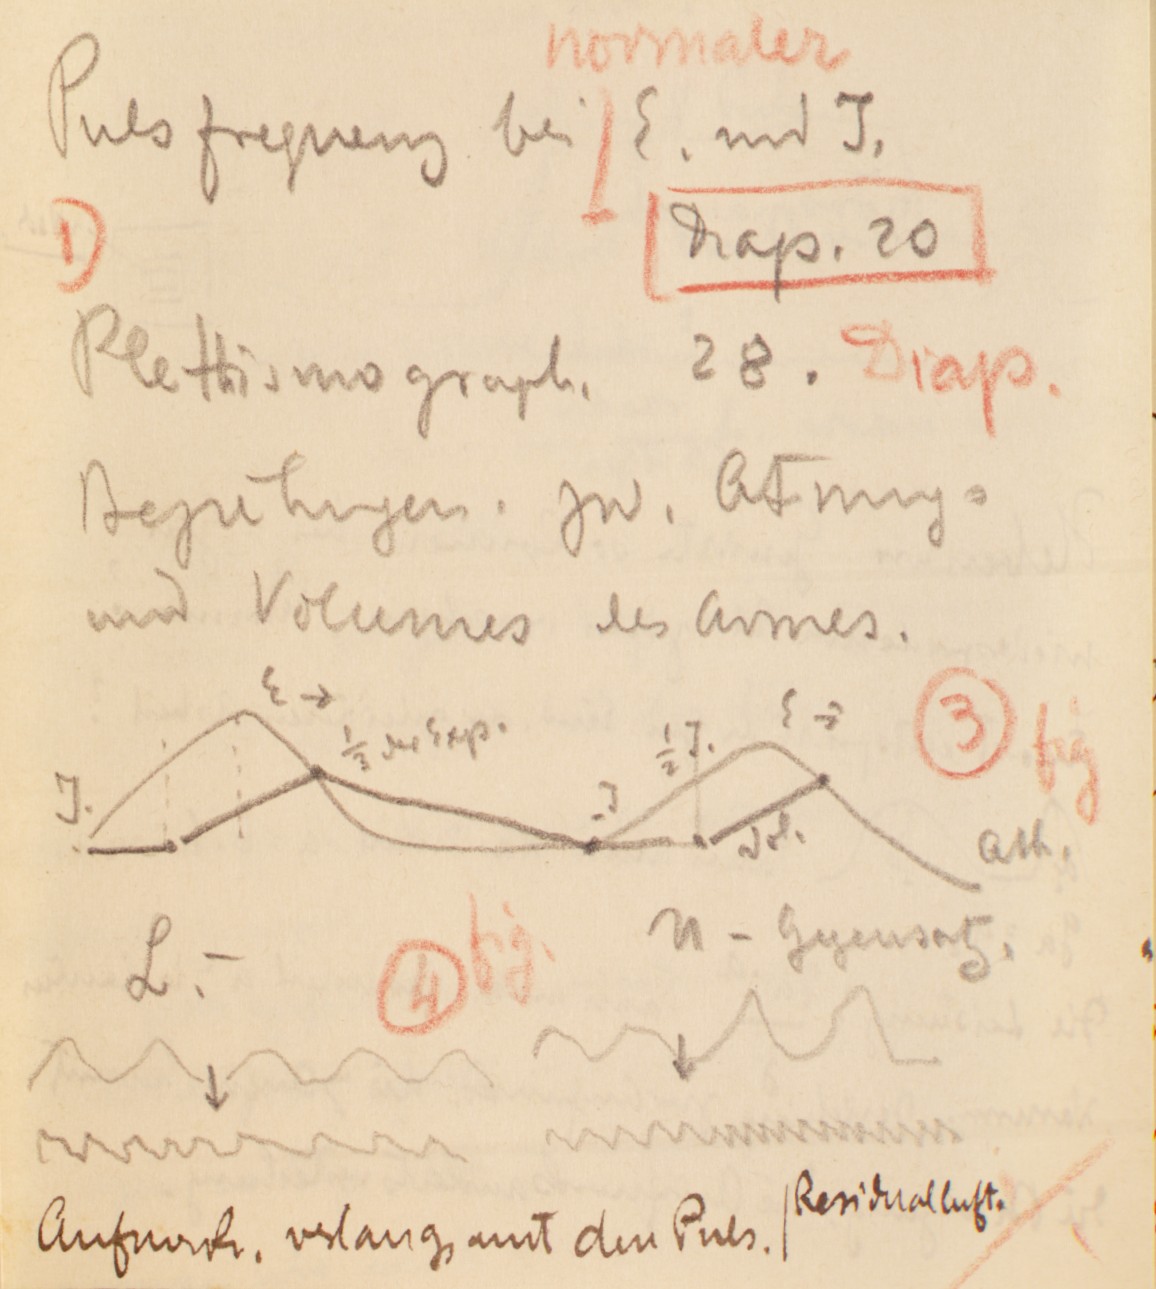 normaler
Pulsfrequenz bei E. und I.
1)
Diap. 20
Plethismograph. 28. Diap.
Beziehungen. zw. Atmung
und Volumes des Armes.
E → E →
3 fig
1/3 der Exp. 1/2 I.
I. I
Ath.
L. - 4 fig. U - Gegensatz.
Aufmerk. verlangsamt den Puls. | Residualluft.